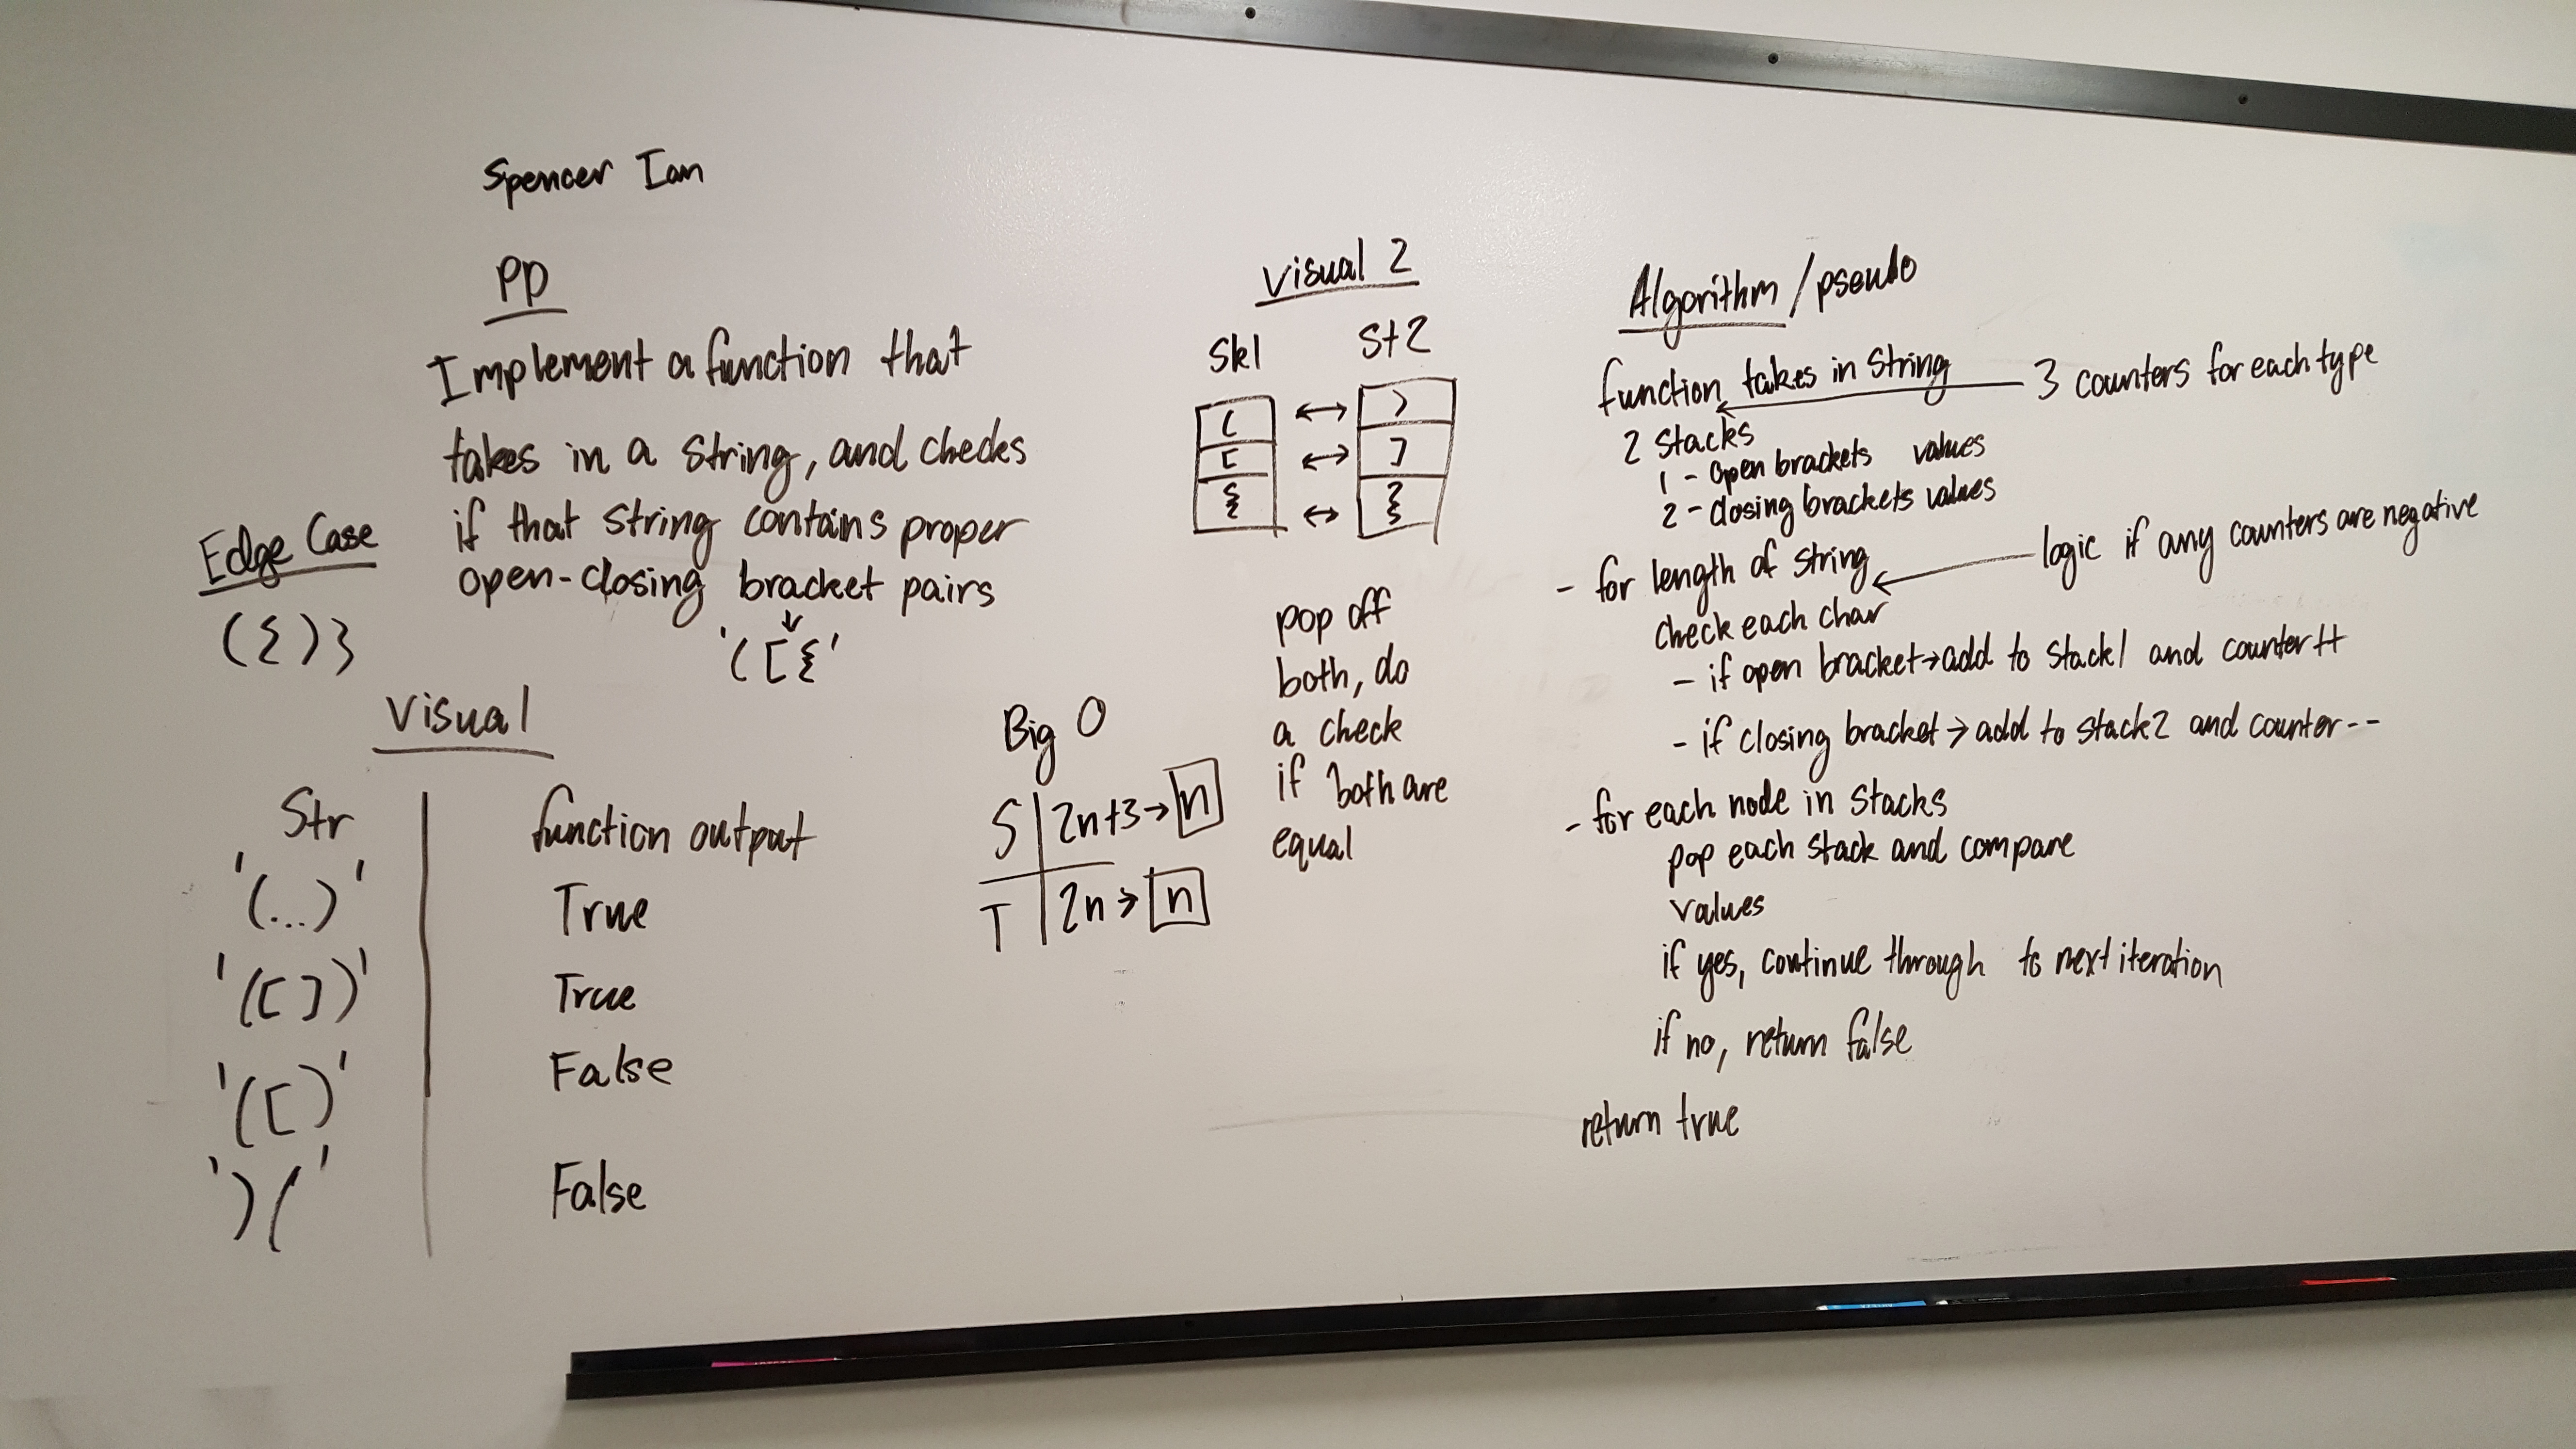 Spencer Ian
PP
Implement a function that
takes in a string, and checks
if that string contains proper
open-closing bracket pairs
'([{'
Edge Case
({)}
Visual
Str function output
'(...)' True
'([])' True
'([)' False
')(' False
Big O
S 2n+3→ n
T 2n→ n
Visual 2
Sk1 St2
( ↔ )
[ ↔ ]
{ ↔ }
pop off
both, do
a check
if both are
equal
Algorithm/pseudo
function takes in string
3 counters for each type
2 stacks
1 - open brackets values
2 - closing brackets values
- for length of string
logic if any counters are negative
check each char
- if open bracket→add to stack1 and counter++
- if closing bracket→add to stack2 and counter--
- for each node in stacks
pop each stack and compare
values
if yes, continue through to next iteration
if no, return false
return true